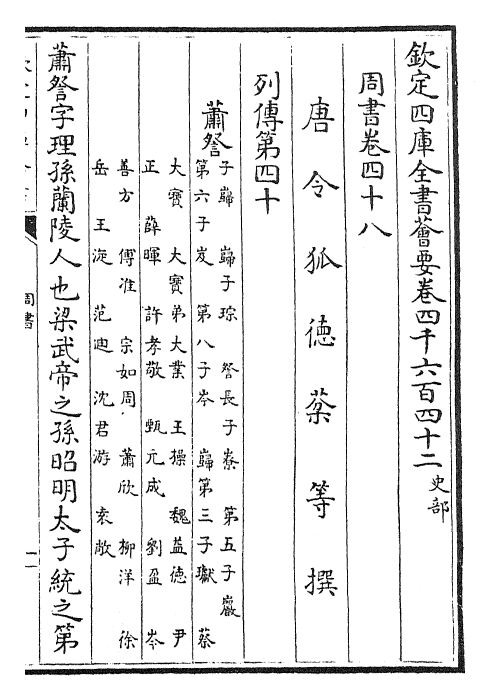 欽定四庫全書薈要卷四千六百四十二史部
周書卷四十八
唐令狐德棻等撰
列傳第四十
蕭詧
子巋 巋子琮 詧長子嶚 第五子巖
第六子岌 第八子岑 巋第三子瓛 蔡
大寶 大寶弟大業 王操 魏益德 尹
正 薛暉 許孝敬 甄元成 劉盈 岑
善方 傅准 宗如周 蕭欣 柳洋 徐
岳 王淀 范迪 沈君游 袁敞
蕭詧字理孫蘭陵人也梁武帝之孫昭明太子統之第
周書
一